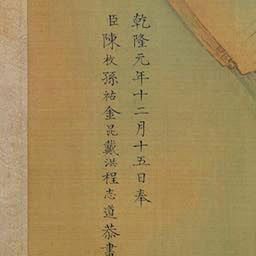 乾隆元年十二月十五日奉
臣陳枚孫祜金昆戴洪程志道恭畫